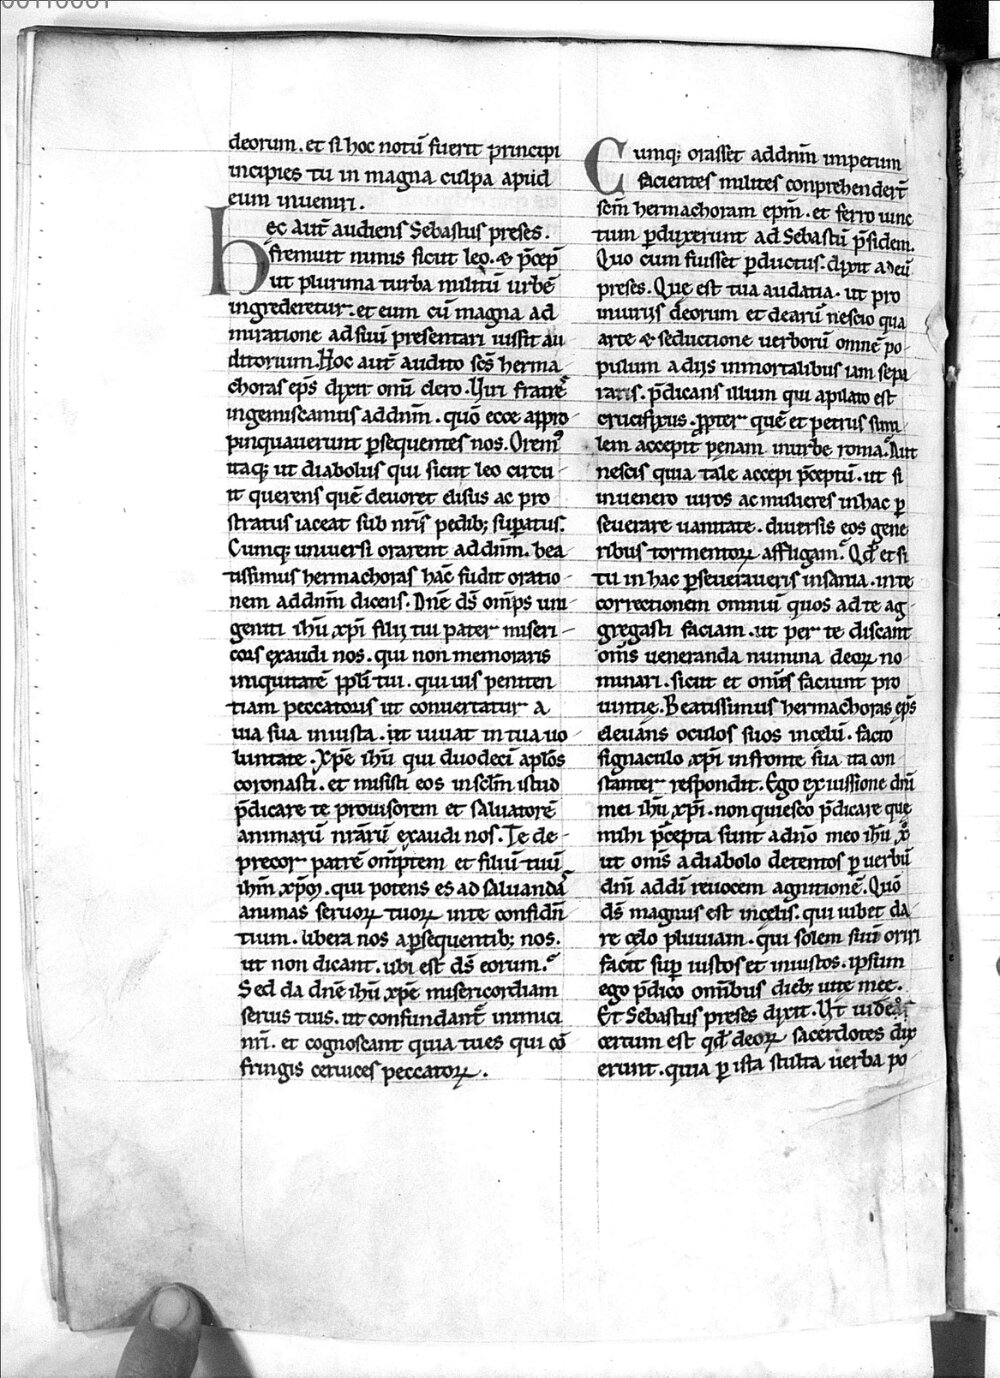 deorum. et si hoc notū fuerit principi
incipies tu in magna culpa apud
eum inueniri.
Hec aut̄ audiens Sebastus preses.
fremuit nimis sicut leo. & p̄cep̄
ut plurima turba militū urbē
ingrederetur. et eum cū magna ad
miratione ad suū presentari iussit au
ditorium. Hoc aut̄ audito sc̄s herma
choras ep̄s dixit om̄i clero. Uiri fratrē
ingemiscamus ad dn̄m. quō ecce appro
pinquauerunt p̄sequentes nos. Orem᷒
itaq; ut diabolus qui sicut leo circu
it querens quē deuoret elisus ac pro
stratus iaceat sub nr̄is pedib; supatus.
Cumq; uniuersi orarent ad dn̄m. bea
tissimus hermachoras hāc fudit oratio
nem ad dn̄m dicens. Dn̄e ds̄ om̄ps uni
geniti ihū xp̄i filij tui pater miseri
cors exaudi nos. qui non memoraris
iniquitatē pp̄li tui. qui uis peniten
tiam peccatoris ut conuertatur a
uia sua iniusta. ut uiuat in tua uo
luntate. Xp̄e ihū qui duodeci ap̄los
coronasti. et misisti eos in sclm̄ istud
p̄dicare te prouisorem et saluatorē
animarū nr̄arū exaudi nos. Te de
precor patrē om̄ptem et filiū tuū
ihm̄ xp̄m. qui potens es ad saluandā
animas seruoꝝ tuoꝝ in te confidn̄
tium. libera nos a p̄sequentib; nos.
ut non dicant. ubi est ds̄ eorum.
Sed da dn̄e ihū xp̄e misericordiam
seruis tuis. ut confundant̄ inimici
nr̄i. et cognoscant quia tu es qui cō
fringis ceruices peccatoꝝ.
Cumq; orasset ad dn̄m impetum
facientes milites conprehender̄t
scm̄ hermachoram ep̄m. et ferro uinc
tum p̄duxerunt ad Sebastū p̄sidem.
Quo cum fuisset p̄ductus. dixit ad eū
preses. Que est tua audatia. ut pro
iniurijs deorum et dearū nescio qua
arte & seductione uerborū omnē po
pulum a dijs inmortalibus iam sepa
raris. p̄dicans illum qui a pilato est
crucifixus. p̄pter quē et petrus simi
lem accepit penam in urbe roma. Aut
nescis quia tale accepi p̄ceptū. ut si
inuenero uiros ac mulieres in hac p̄
seuerare uanitate. diuersis eos gene
ribus tormentoꝝ affligam. Qd̄ et si
tu in hac p̄seueraueris insania. in te
correctionem omniū quos ad te ag
gregasti faciam. ut per te discant
om̄s ueneranda numina deoꝝ no
minari. sicut et om̄es faciunt pro
uintie. Beatissimus hermachoras ep̄s
eleuans oculos suos in celū. facto
signaculo xp̄i in fronte sua ita con
stanter respondit. Ego ex iussione dn̄i
mei ihū xp̄i. non quiesco p̄dicare que
mihi p̄cepta sunt a dn̄o meo ihū xp̄o
ut om̄s a diabolo detentos p̄ uerbū
dn̄i ad dī reuocem agnitionē. Quō
ds̄ magnus est in celis. qui iubet da
re celo pluuiam. qui solem suū oriri
facit sup̄ iustos et iniustos. ipsum
ego p̄dico om̄ibus dieb; uite mee.
Et Sebastus preses dixit. Ut
certum est qd̄ deoꝝ sacerdotes dix
erunt. quia p̄ ista stulta uerba po